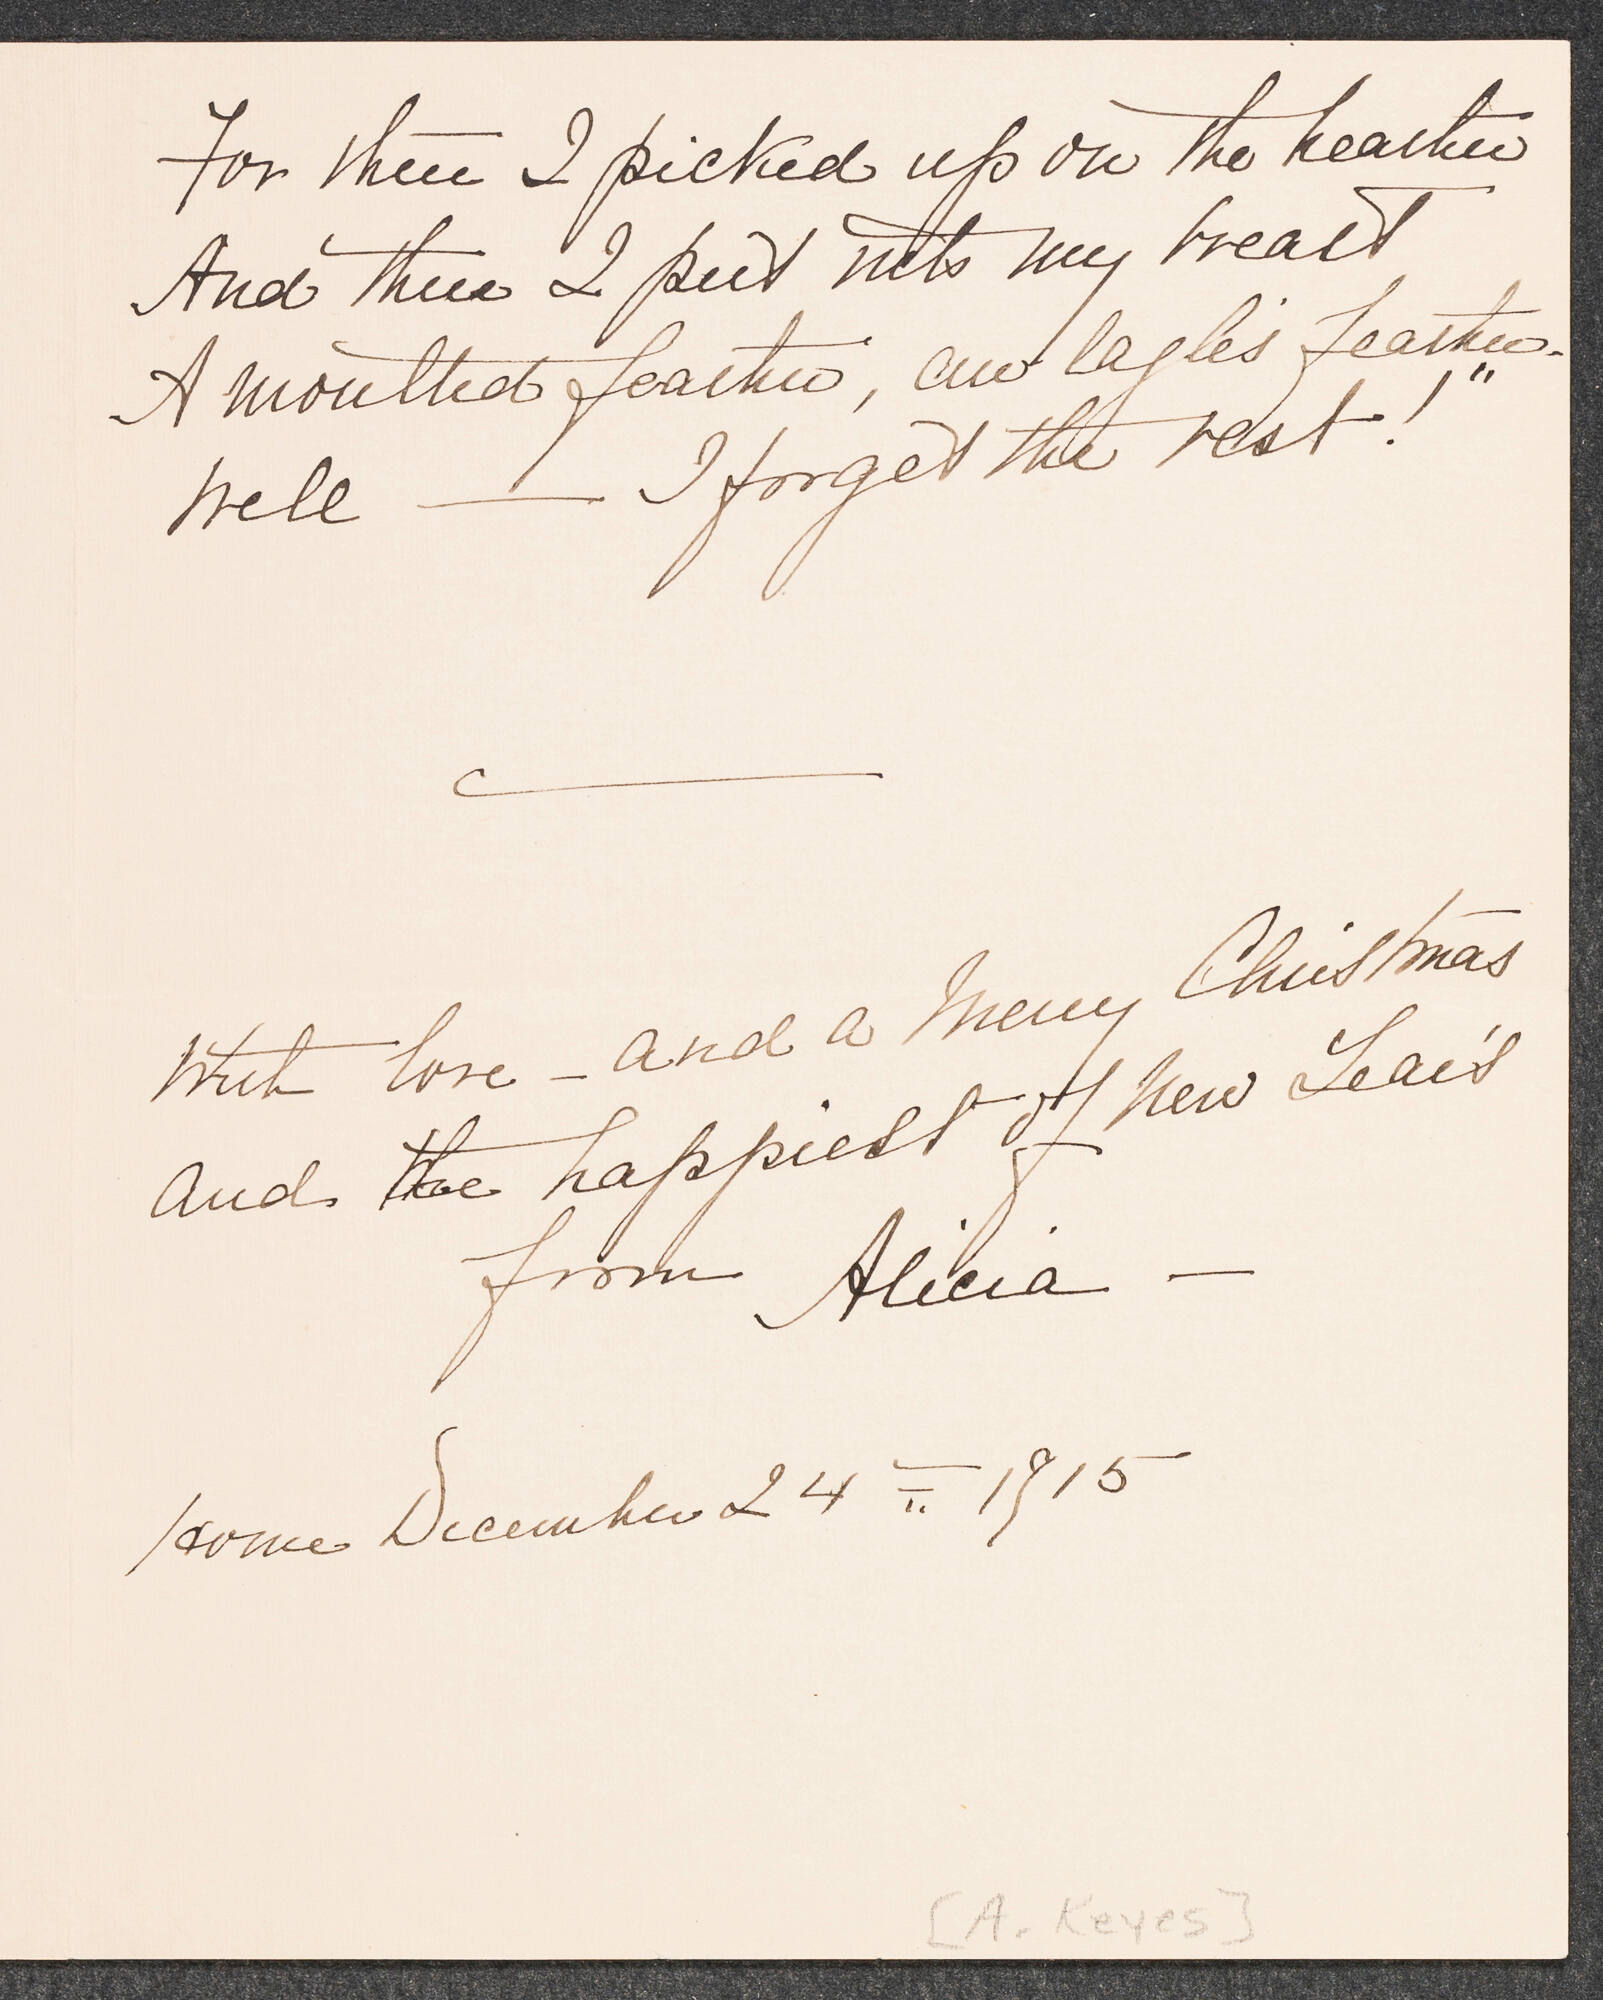 For there I picked up on the heather
And there I put into my breast
A moulted feather, an eagle's feather.
Well — I forget the rest!"
With love - and a Merry Christmas
and the happiest of New Year's
from Alicia -
Home December 24th 1915
[A. Keyes]